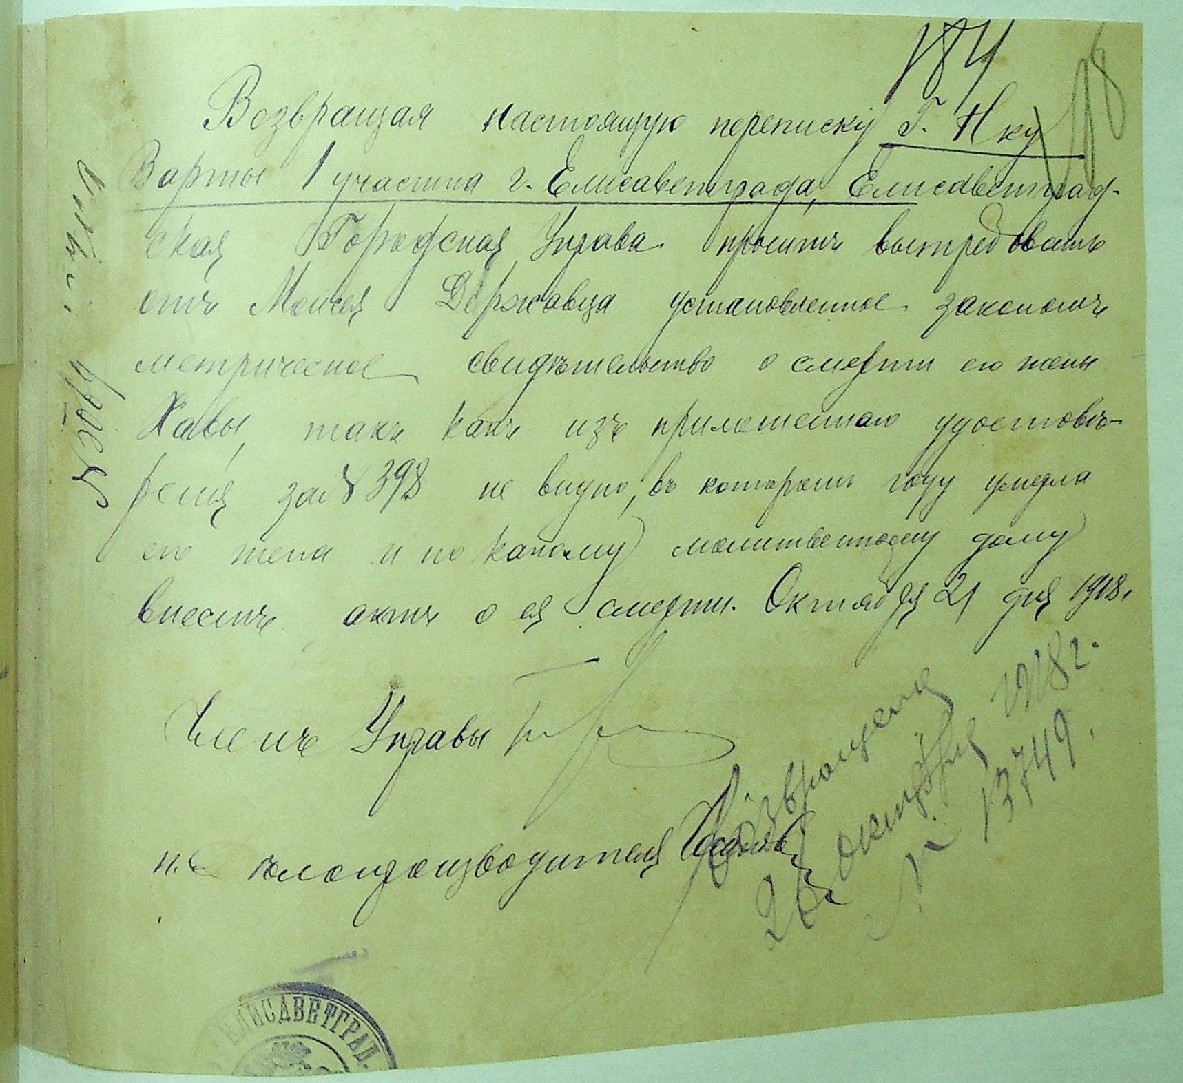 184
198
Возвращая настоящую переписку Г. Н-ку
Варты 1 участка г. Елисаветграда, Елисаветград-
ская Городская Управа проситъ вытребовать
отъ Мойсея Державца установленное закономъ
метрическое свидѣтельство о смерти его жены
Хавы, такъ какъ изъ приложеннаго удостовѣ-
рения за № 398 не видно, въ которомъ году умерла
его жена и по какому молитвенному дому
внесенъ актъ о ея смерти. Октября 21 дня 1918 г.
Членъ Управы
и.о. делопроизводителя
Возвращена
26 октября 1918 г.
№ 13749.
ЕЛИСАВЕТГРАД